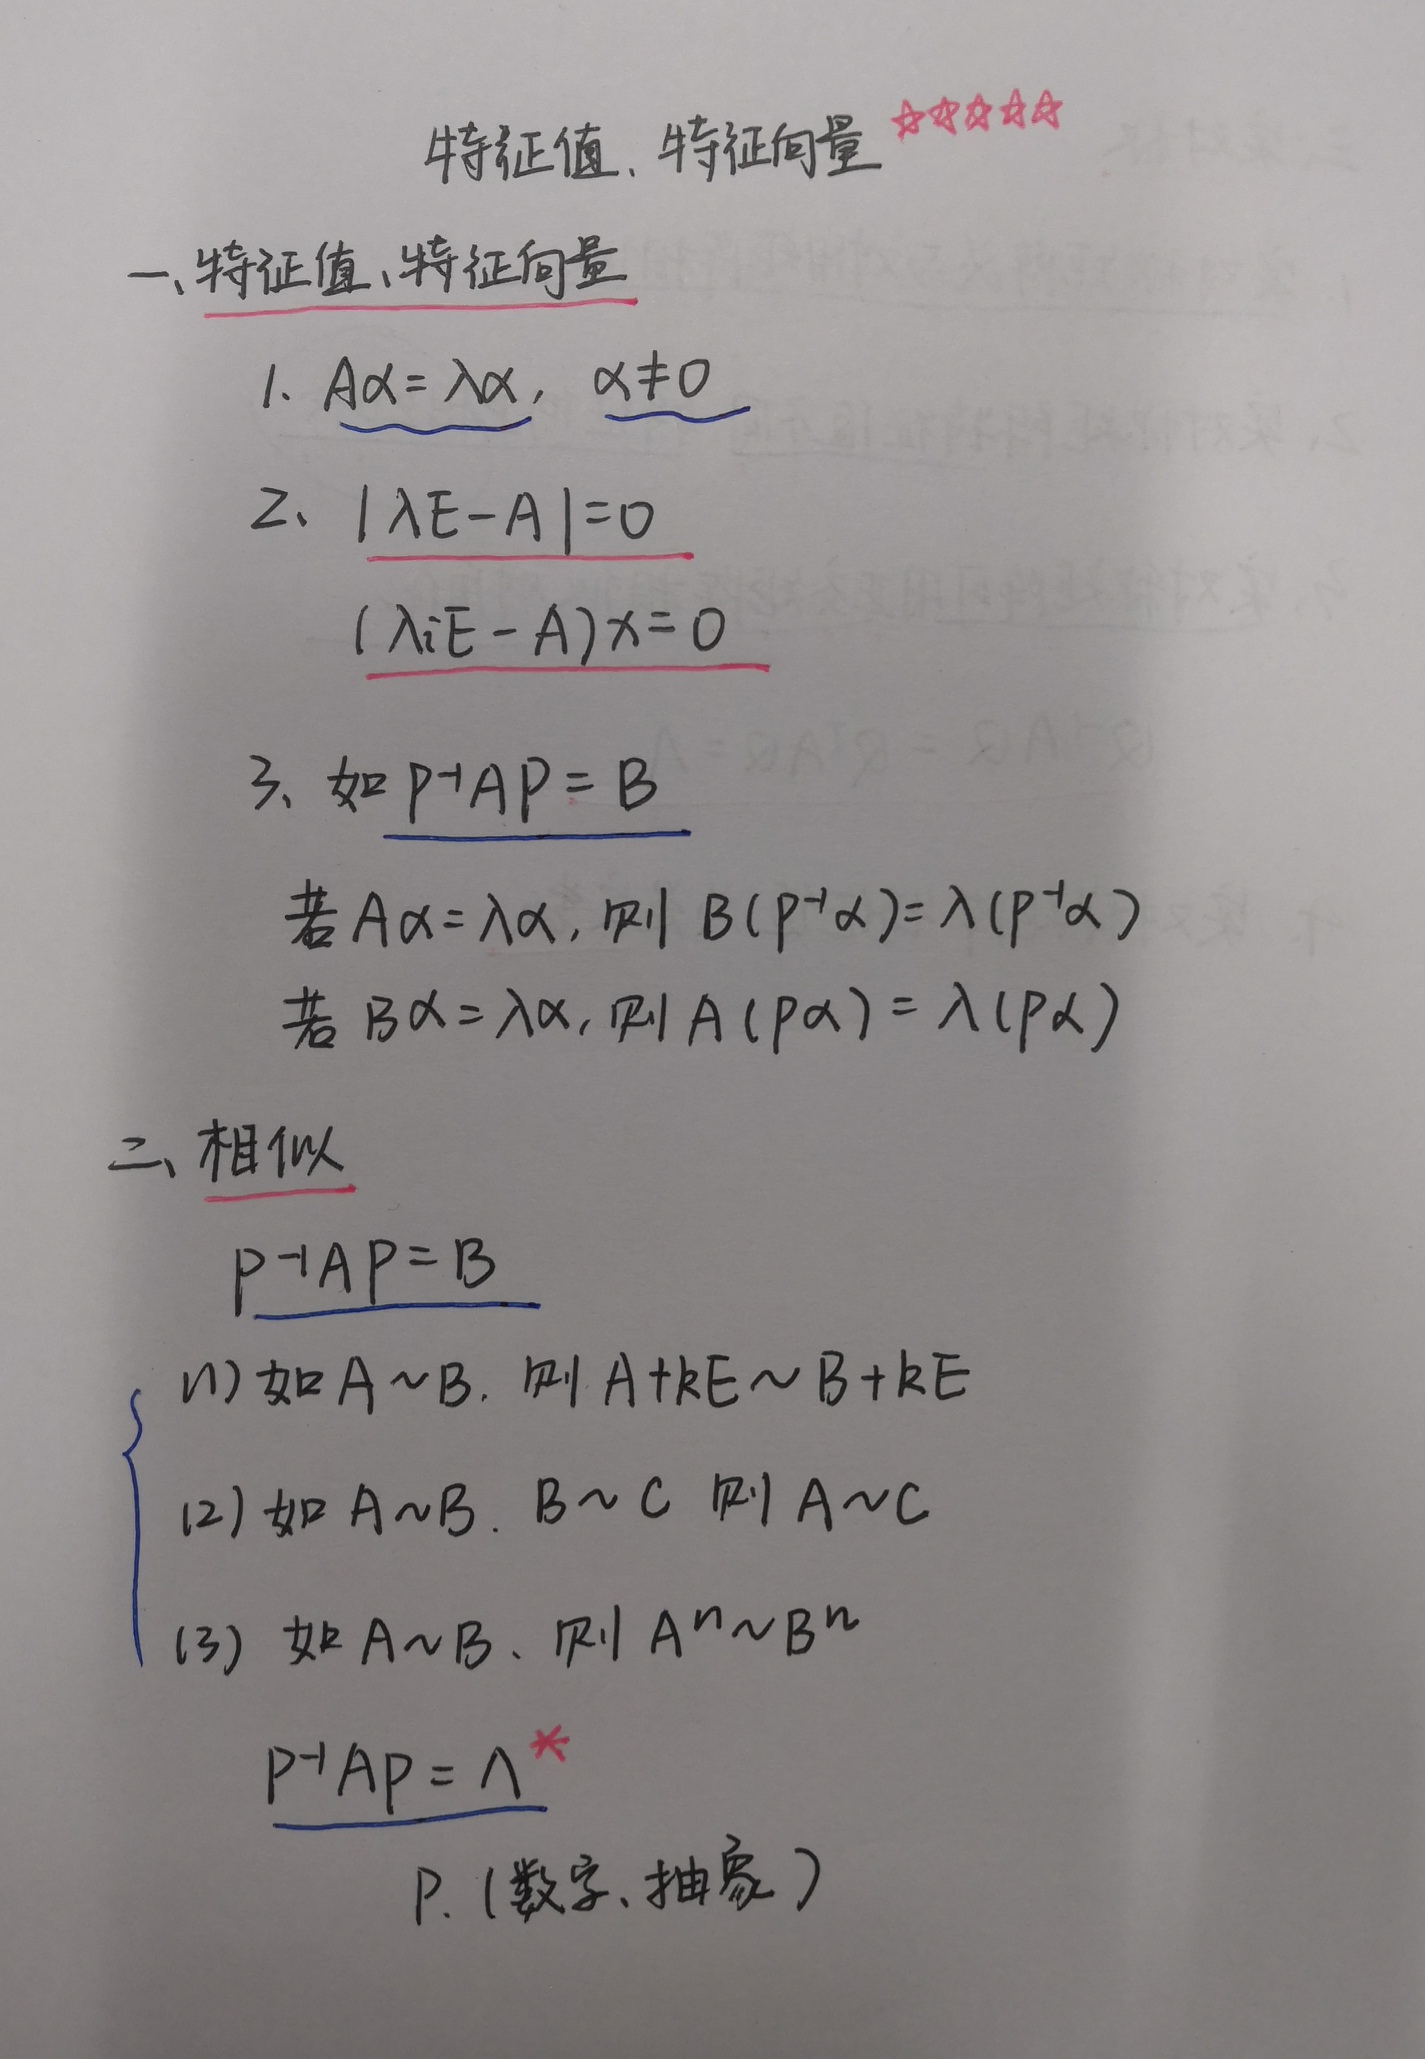 特征值、特征向量 ☆☆☆☆☆
一、特征值、特征向量
1. Aα=λα, α≠0
2、|λE-A|=0
(λiE-A)x=0
3、如 P⁻¹AP=B
若Aα=λα, 则 B(P⁻¹α)=λ(P⁻¹α)
若Bα=λα, 则 A(Pα)=λ(Pα)
二、相似
P⁻¹AP=B
(1) 如A~B. 则 A+kE~B+kE
(2) 如 A~B. B~C 则 A~C
(3) 如 A~B、则 Aⁿ~Bⁿ
P⁻¹AP=Λ *
P. (数字、抽象)